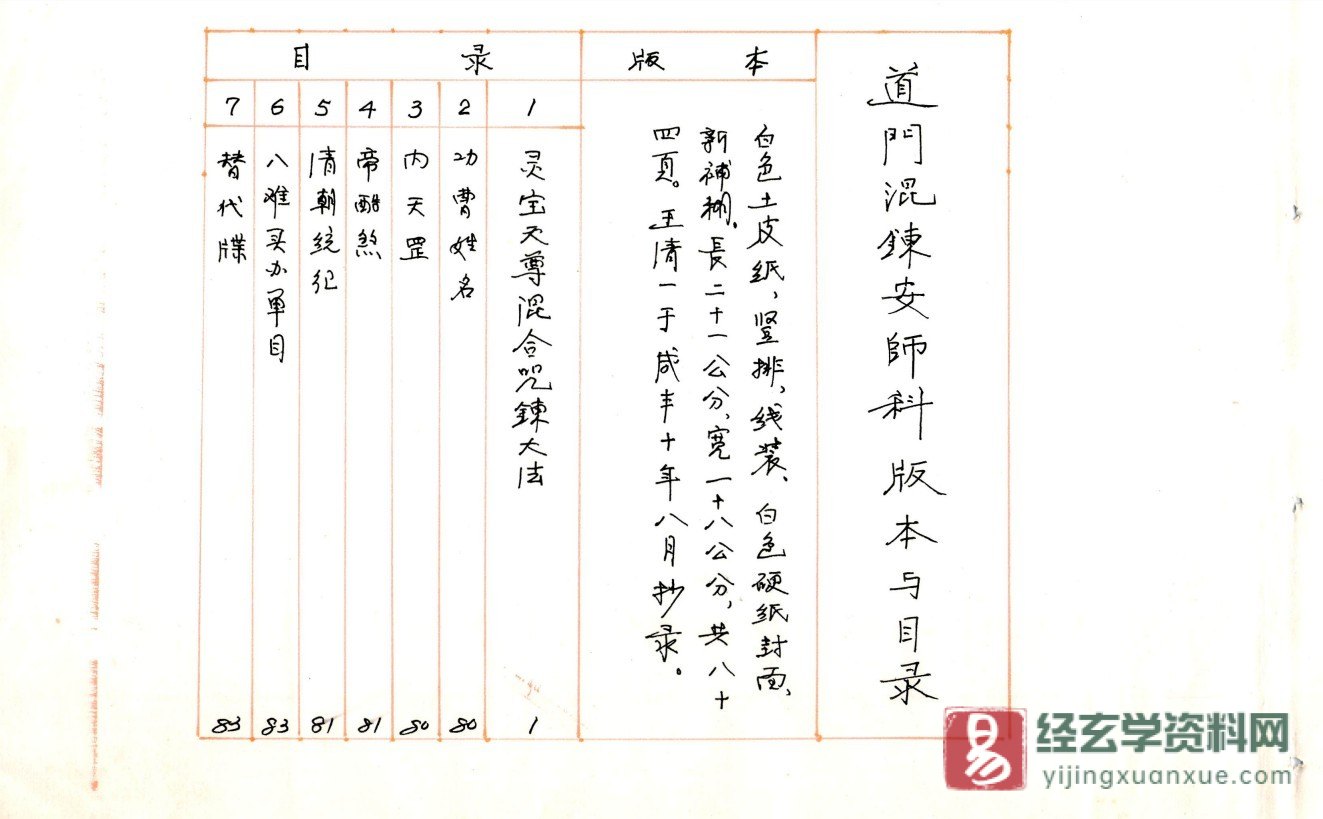 道門混鍊安師科版本与目录
版本
白色土皮纸，竖排，线装、白色硬纸封面、
新補糊。長二十一公分，宽一十八公分，共八十
四頁。王清一于咸丰十年八月抄录。
目录
1 灵宝天尊混合咒鍊大法 1
2 功曹姓名 80
3 内天罡 80
4 帝酷煞 81
5 清朝统纪 81
6 八难买办单目 83
7 替代牒 83
易
经玄学资料网
yijingxuanxue.com